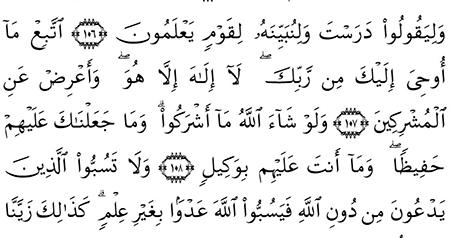 وَلِيَقُولُوا۟ دَرَسْتَ وَلِنُبَيِّنَهُۥ لِقَوْمٍ يَعْلَمُونَ ١٠٦ ٱتَّبِعْ مَآ
أُوحِىَ إِلَيْكَ مِن رَّبِّكَ ۖ لَآ إِلَٰهَ إِلَّا هُوَ ۖ وَأَعْرِضْ عَنِ
ٱلْمُشْرِكِينَ ١٠٧ وَلَوْ شَآءَ ٱللَّهُ مَآ أَشْرَكُوا۟ ۗ وَمَا جَعَلْنَٰكَ عَلَيْهِمْ
حَفِيظًا ۖ وَمَآ أَنتَ عَلَيْهِم بِوَكِيلٍ ١٠٨ وَلَا تَسُبُّوا۟ ٱلَّذِينَ
يَدْعُونَ مِن دُونِ ٱللَّهِ فَيَسُبُّوا۟ ٱللَّهَ عَدْوًۢا بِغَيْرِ عِلْمٍ ۗ كَذَٰلِكَ زَيَّنَّا